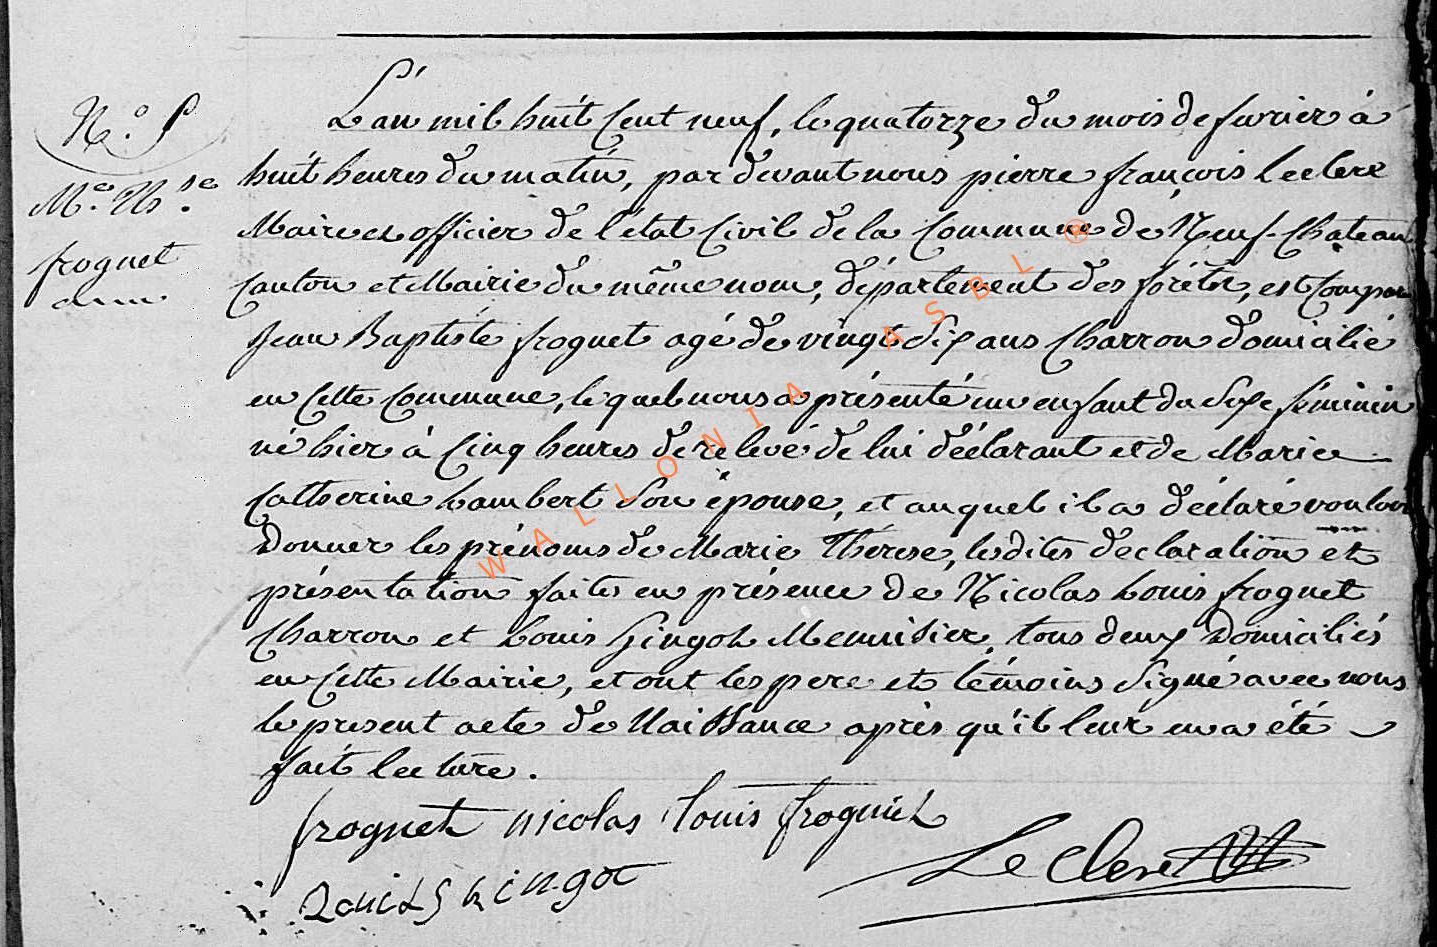 L'an mil huit Cent neuf, le quatorze du mois de fevrier à
huit heures du matin, par devant nous pierre françois Leclerx
Maire et officier de l'état Civil de la Commune de Neuf-Chateau
Canton et Mairie du même nom, département des forêts, est Compar
Jean Baptiste froguet agé de vingt Six ans Charron domicilié
en Cette Commune, le quel nous a présenté un enfant du Sexe féminin
né hier à Cinq heures de relevé de lui déclarant et de Marie
Catherine Lambert Son épouse, et auquel il a déclaré vouloir
Donner les prénoms de Marie Thérese, lesdites declaration et
présentation faites en présence de Nicolas Louis froguet
Charron et Louis Gingot Menuisier, tous deux Domiciliés
en Cette Mairie, et ont les pere et témoins Signé avec nous
le present acte de Naissance après qu'il leur en a été
fait lecture.
N.°
M.e Th.se
froguet
froguet nicolas louis froguet
Leclerx
WALLONIA ASBL ®